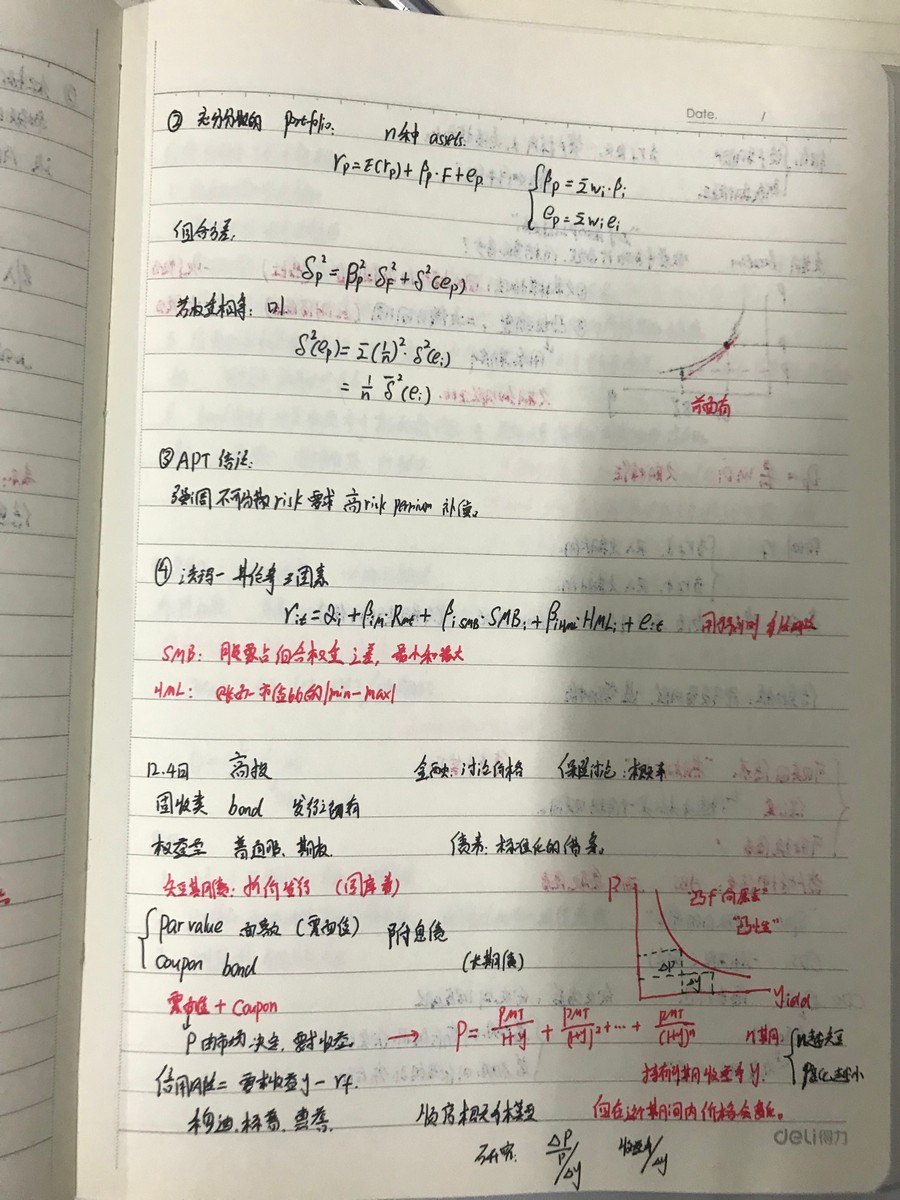 Date. /
② 充分分散的 portfolio: n种 assets.
rp = E(rp) + βp·F + ep
βp = Σwi·βi
ep = Σwiei
组合方差,
δp² = βp²·δF² + δ²(ep)
若权重相等: 则
δ²(ep) = Σ(1/n)²·δ²(ei)
= 1/n δ̄²(ei).
前面有
③ APT 结论:
强调不可分散 risk 要求 高 risk permium 补偿。
④ 法玛-弗伦奇三因素
rit = αi + βiM·Rmt + βiSMB·SMBi + βiHML·HMLi + eit
SMB: 之差, 最小和最大
HML: 市值比的|min-max|
12.4日 高投
讨论价格 保险讨论: 概率
固收类 bond
权益类 普通股、期权
债券: 标准化的借条。
短期债: 折价发行 (国库券)
par value 面额 (票面值) 附息债
coupon bond (长期债)
P "凸性"
ΔP Δy
yield
票面值 + coupon
P 由市场决定, 要求收益。 → P = PMT/(1+y) + PMT/(1+y)² + ... + PMT/(1+y)ⁿ n期
n越短
P变化越小
信用风险 = 要求收益y - rf.
持有n期收益率y.
穆迪、标普、惠誉.
但在这个期间内价格会变化。
研究: ΔP/P / Δy 收益率/Δy
deli得力